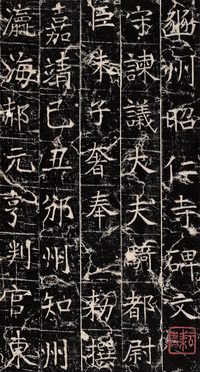 豳州昭仁寺碑文
守諫議大夫騎都尉
臣朱子奢奉勑撰
嘉靖己丑邠州知州
瀛海郝元亨判官東